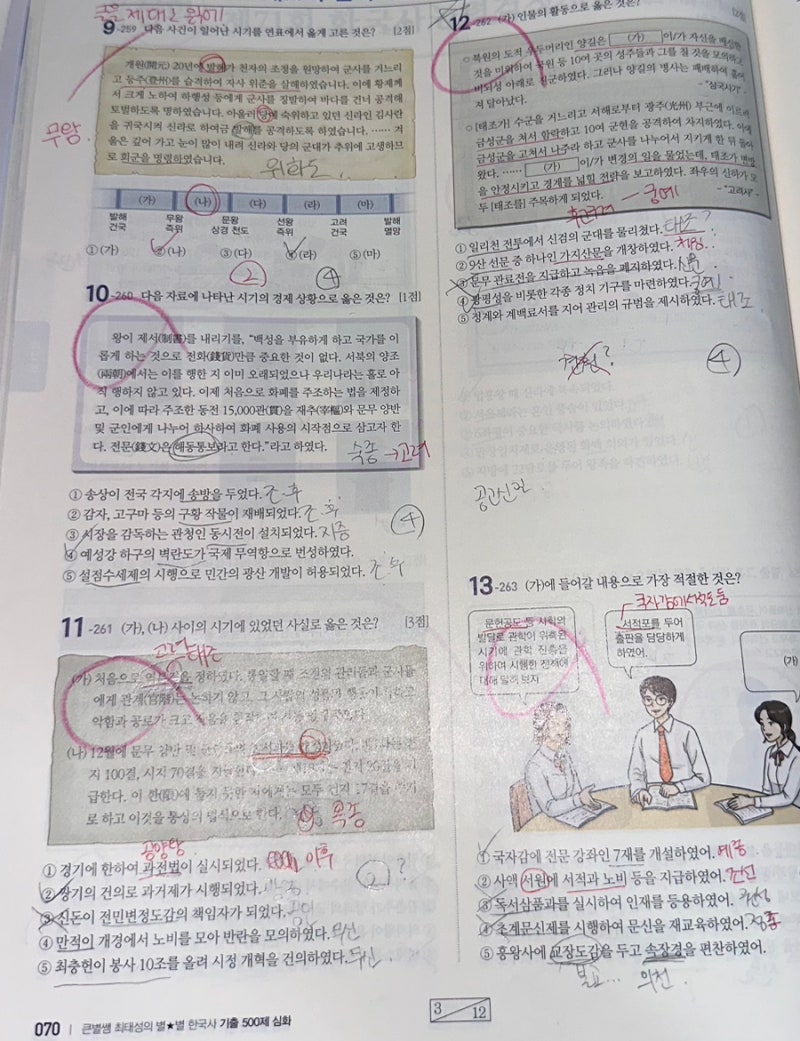 글을 제대로 읽기
9-259 다음 사건이 일어난 시기를 연표에서 옳게 고른 것은? [2점]
개원(開元) 20년에 발해가 천자의 조정을 원망하여 군사를 거느리
고 등주(登州)를 습격하여 자사 위준을 살해하였습니다. 이에 황제께
서 크게 노하여 하행성 등에게 군사를 징발하여 바다를 건너 공격해
토벌하도록 명하였습니다. 아울러 당에 숙위하고 있던 신라인 김사란
을 귀국시켜 신라로 하여금 발해를 공격하도록 하였습니다. …… 겨
울은 깊어 가고 눈이 많이 내려 신라와 당의 군대가 추위에 고생하므
로 회군을 명령하였습니다.
무왕.
위화도
(가) (나) (다) (라) (마)
발해 건국 무왕 즉위 문왕 상경 천도 선왕 즉위 고려 건국 발해 멸망
①(가) ②(나) ③(다) ④(라) ⑤(마)
② ④
10-260 다음 자료에 나타난 시기의 경제 상황으로 옳은 것은? [1점]
왕이 제서(制書)를 내리기를, “백성을 부유하게 하고 국가를 이
롭게 하는 것으로 전화(錢貨)만큼 중요한 것이 없다. 서북의 양조
(兩朝)에서는 이를 행한 지 이미 오래되었으나 우리나라는 홀로 아
직 행하지 않고 있다. 이제 처음으로 화폐를 주조하는 법을 제정하
고, 이에 따라 주조한 동전 15,000관(貫)을 재추(宰樞)와 문무 양반
및 군인에게 나누어 하사하여 화폐 사용의 시작점으로 삼고자 한
다. 전문(錢文)은 해동통보라고 한다.”라고 하였다.
숙종 → 고려
① 송상이 전국 각지에 송방을 두었다. 조. 후
② 감자, 고구마 등의 구황 작물이 재배되었다. 조. 후
③ 시장을 감독하는 관청인 동시전이 설치되었다. 지증
④ 예성강 하구의 벽란도가 국제 무역항으로 번성하였다.
⑤ 설점수세제의 시행으로 민간의 광산 개발이 허용되었다. 조. 후
④
11-261 (가), (나) 사이의 시기에 있었던 사실로 옳은 것은? [3점]
고려 태조
(가) 처음으로 역분전을 정하였다. 통일할 때 조정의 관리들과 군사들
에게 관계(官階)는 논하지 않고, 그 사람의 성품과 행동의 선하고
악함과 공로가 크고 작음을
(나) 12월에 문무 양반 및
지 100결, 시지 70결을 지급
급한다. 이 한(限)에 들지 못한 자에게는 모두 전지 17결을
로 하고 이것을 통상의 법식으로 한다.
목종
공양왕
① 경기에 한하여 과전법이 실시되었다. 이후
② 쌍기의 건의로 과거제가 시행되었다.
③ 신돈이 전민변정도감의 책임자가 되었다.
④ 만적이 개경에서 노비를 모아 반란을 모의하였다. 무신
⑤ 최충헌이 봉사 10조를 올려 시정 개혁을 건의하였다. 무신
② ?
070 | 큰별쌤 최태성의 별★별 한국사 기출 500제 심화
3 12
12-262 (가) 인물의 활동으로 옳은 것은? [2점]
○ 북원의 도적 우두머리인 양길은 (가) 이/가 자신을 배신한
것을 미워하여 국원 등 10여 곳의 성주들과 그를 칠 것을 모의하고
비뇌성 아래로 진군하였다. 그러나 양길의 병사는 패배하여 흩어
져 달아났다. -“삼국사기”-
○ [태조가] 수군을 거느리고 서해로부터 광주(光州) 부근에 이르러
금성군을 쳐서 함락하고 10여 군현을 공격하여 차지하였다. 이에
금성군을 고쳐서 나주라 하고 군사를 나누어서 지키게 한 뒤 돌아
왔다. …… (가) 이/가 변경의 일을 물었는데, 태조가 변방
을 안정시키고 경계를 넓힐 전략을 보고하였다. 좌우의 신하가 모
두 [태조를] 주목하게 되었다. -“고려사”-
후고구려 — 궁예
① 일리천 전투에서 신검의 군대를 물리쳤다. 태조?
② 9산 선문 중 하나인 가지산문을 개창하였다.
③ 문무 관료전을 지급하고 녹읍을 폐지하였다. 신문
④ 광평성을 비롯한 각종 정치 기구를 마련하였다. 궁예
⑤ 정계와 계백료서를 지어 관리의 규범을 제시하였다. 태조
견훤? ④
13-263 (가)에 들어갈 내용으로 가장 적절한 것은?
국자감에 서적포 둠
문헌공도 등 사학의
발달로 관학이 위축된
시기에 관학 진흥을
위하여 시행한 정책에
대해 말해 보자.
서적포를 두어
출판을 담당하게
하였어.
(가)
① 국자감에 전문 강좌인 7재를 개설하였어. 예종
② 사액 서원에 서적과 노비 등을 지급하였어. 조선
③ 독서삼품과를 실시하여 인재를 등용하였어.
④ 초계문신제를 시행하여 문신을 재교육하였어. 정조
⑤ 흥왕사에 교장도감을 두고 속장경을 편찬하였어.
의천